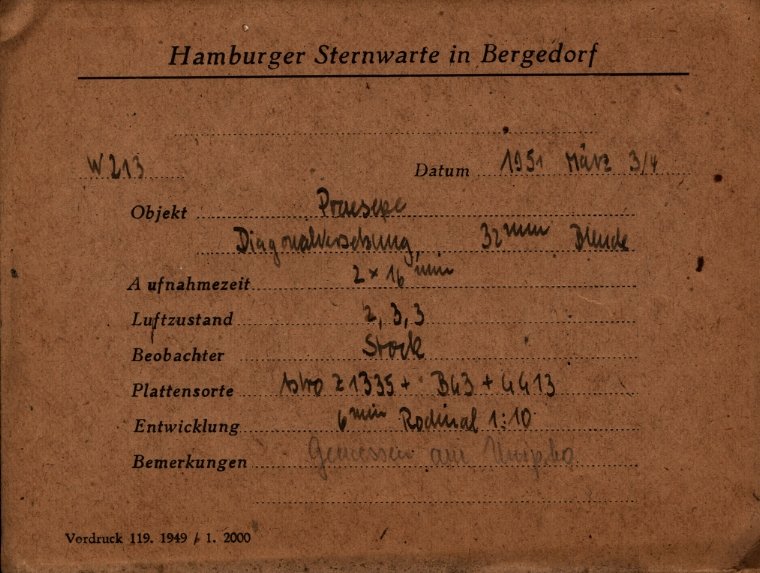 Hamburger Sternwarte in Bergedorf
W 213 Datum 1951 März 3/4
Objekt Praesepe
Diagonalversetzung, 32 mm Blende
Aufnahmezeit 2 × 16 min
Luftzustand 2, 3, 3
Beobachter Stock
Plattensorte Astro Z1335 + B43 + 4413
Entwicklung 6 min Rodinal 1:10
Bemerkungen Gemessen am
Vordruck 119. 1949 / 1. 2000